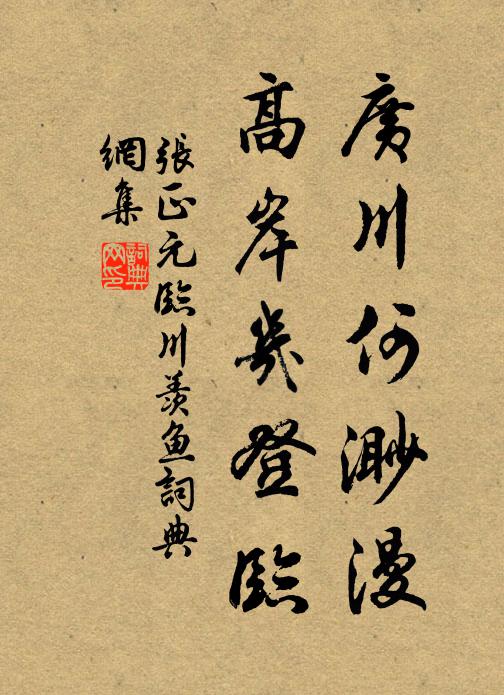 廣川何渺漫
高岸幾登臨
張正元臨川羨魚詞典
網集
詞典
网印